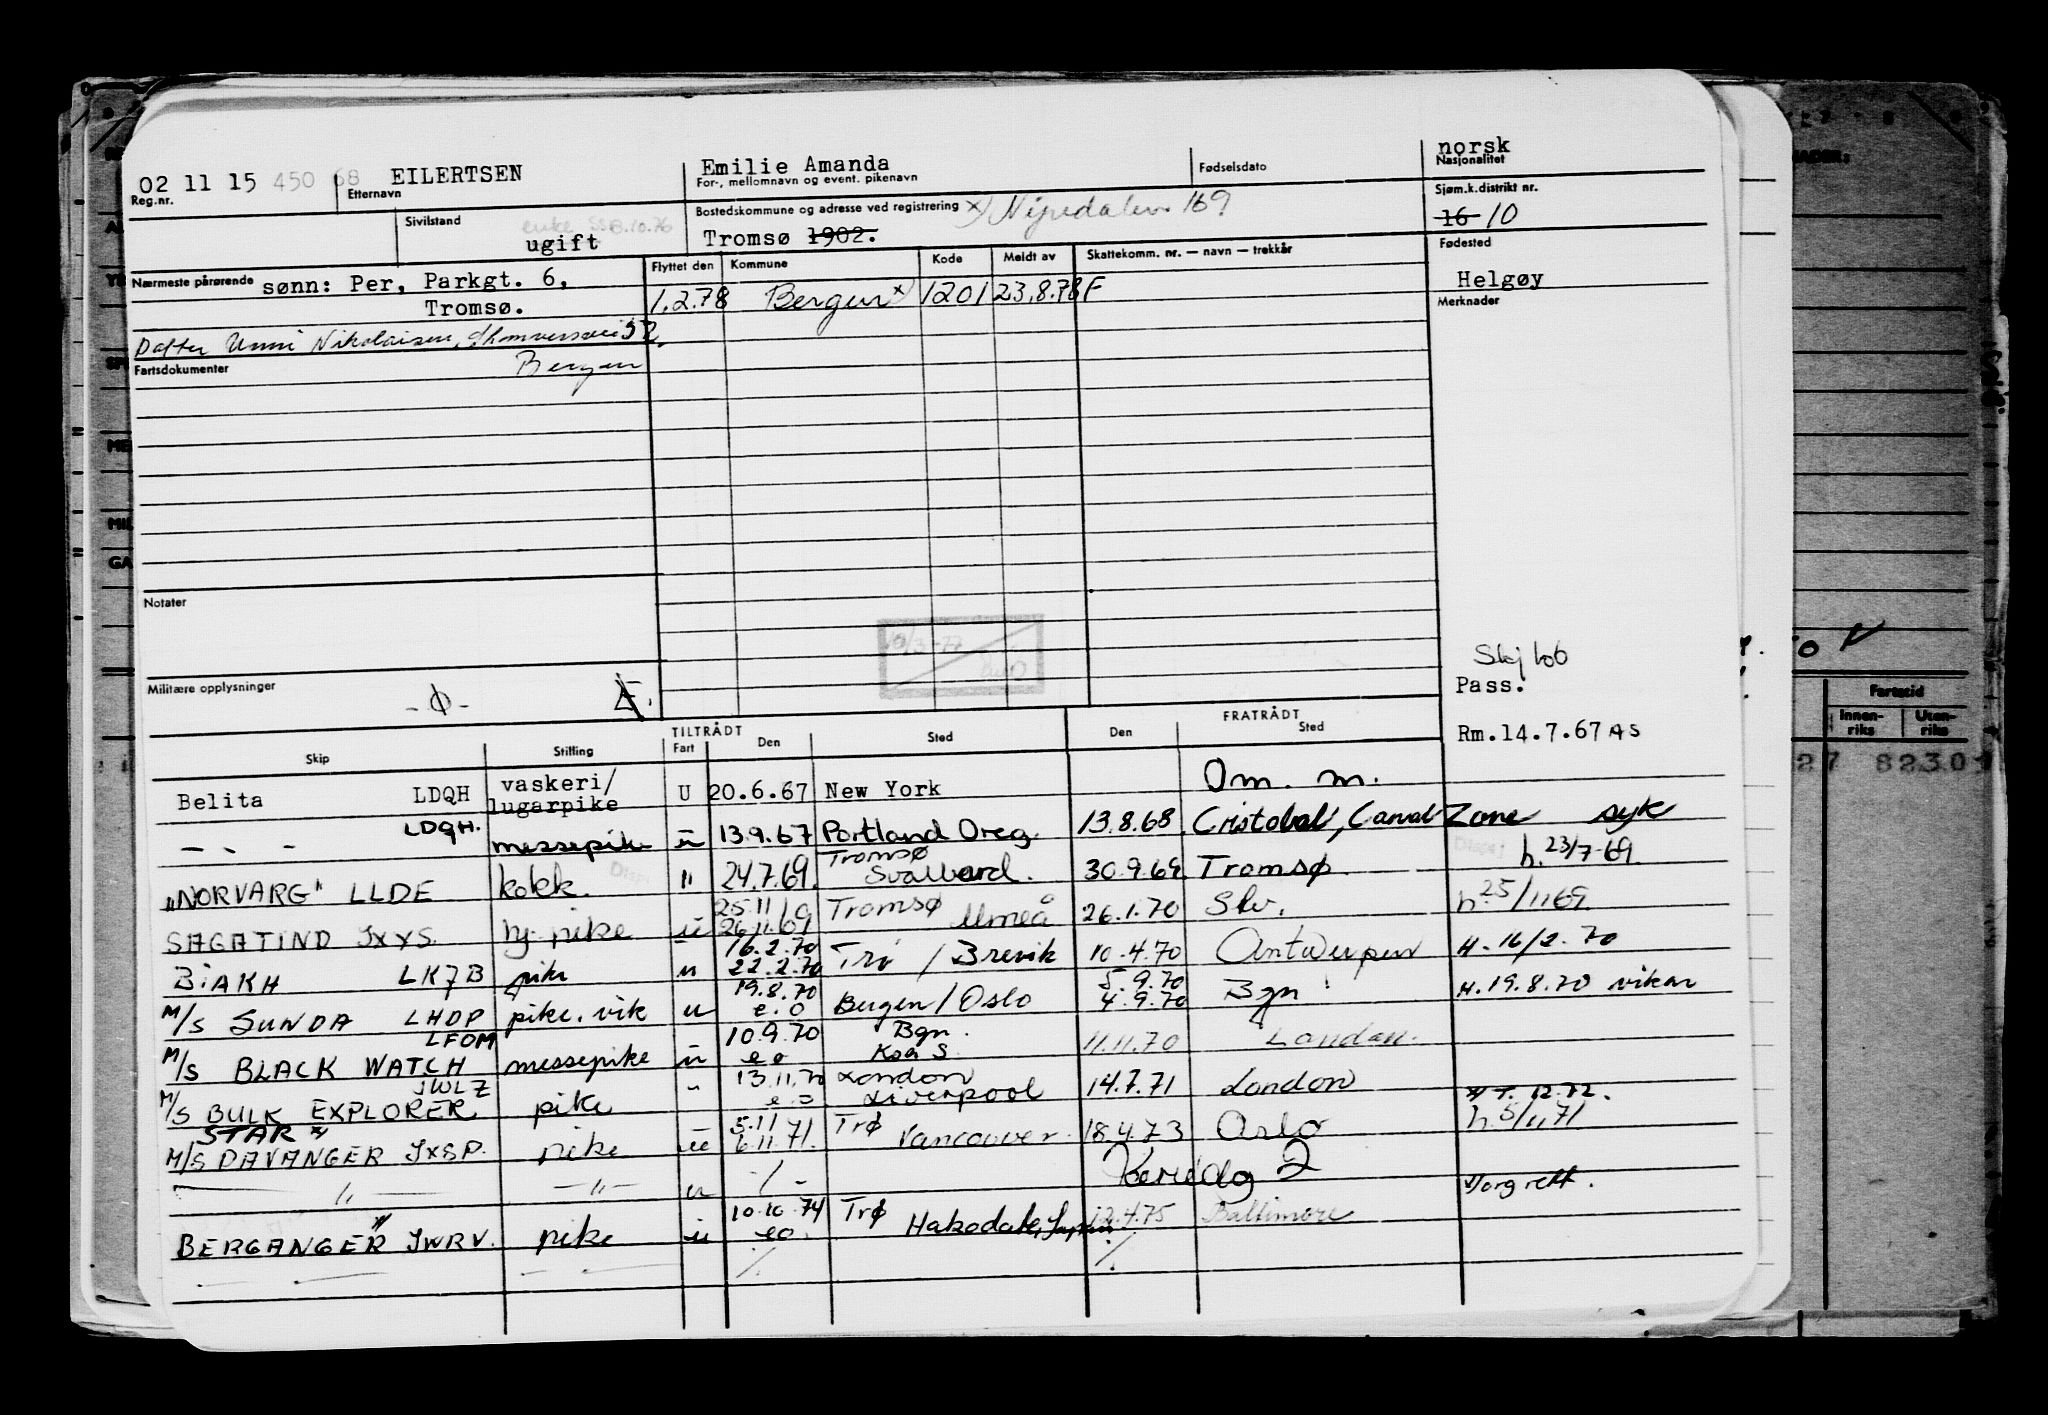 02 11 15 450 68 EILERTSEN Emilie Amanda norsk
Reg.nr. Etternavn For-, mellomnavn og event. pikenavn Fødselsdato Nasjonalitet
Sivilstand Bostedskommune og adresse ved registrering x) 169 Sjøm.k.distrikt nr.
enke SSB.10.76 16 10
ugift Tromsø 1902. Fødested
Nærmeste pårørende sønn: Per, Parkgt. 6, Flyttet den Kommune Kode Meldt av Skattekomm. nr. — navn — trekkår Helgøy
Tromsø. 1.2.78 Bergen x) 1201 23.8.78 F Merknader
Datter Unni Nikolaisen, 52,
Fartsdokumenter Bergen
Notater
Militære opplysninger -0-
Skj 106
Pass.
Rm.14.7.67 AS
TILTRÅDT FRATRÅDT
Skip Stilling Fart Den Sted Den Sted
Belita LDQH vaskeri/ lugarpike U 20.6.67 New York Om. m.
- - - LDQH. messepike u 13.9.67 Portland Oreg. 13.8.68. Cristobal, Canal Zone syk
"NORVARG" LLDE kokk. " 24.7.69. Tromsø Svalbard. 30.9.69. Tromsø. h. 23/7-69.
SAGATIND JXYS. pike u 25.11 26.11.69 Tromsø Umeå 26.1.70 Slv. h. 25/1169.
BIAKH LKJB pike u 16.2.70 22.2.70 Trø / Brevik 10.4.70 Antwerpen H. 16/2.70
M/S SUNDA LHDP pike. vik u 19.8.70 e.o Bergen / Oslo 5.9.70 4.9.70 Bgn H. 19.8.70 vikar
M/S BLACK WATCH LFOM messepike u 10.9.70 eo Bgn. Koa S. 11.11.70 London.
M/S BULK EXPLORER JWLZ pike " 13.11.70 e.o London Liverpool 14.7.71 London x) T. 12.72.
STAR x)
M/S DAVANGER JXSP. pike u 5.11 6.11.71. Trø Vancouver. 18.4.73 Oslo h. 5/11.71
— " — — " — u - / - 2 rett.
BERGANGER x) JWRV. pike u 10.10.74 eo. Trø Hakodate, Japan 12.4.75 Baltimore
— — — — — /. /.
Fartstid
Innen-riks Uten-riks